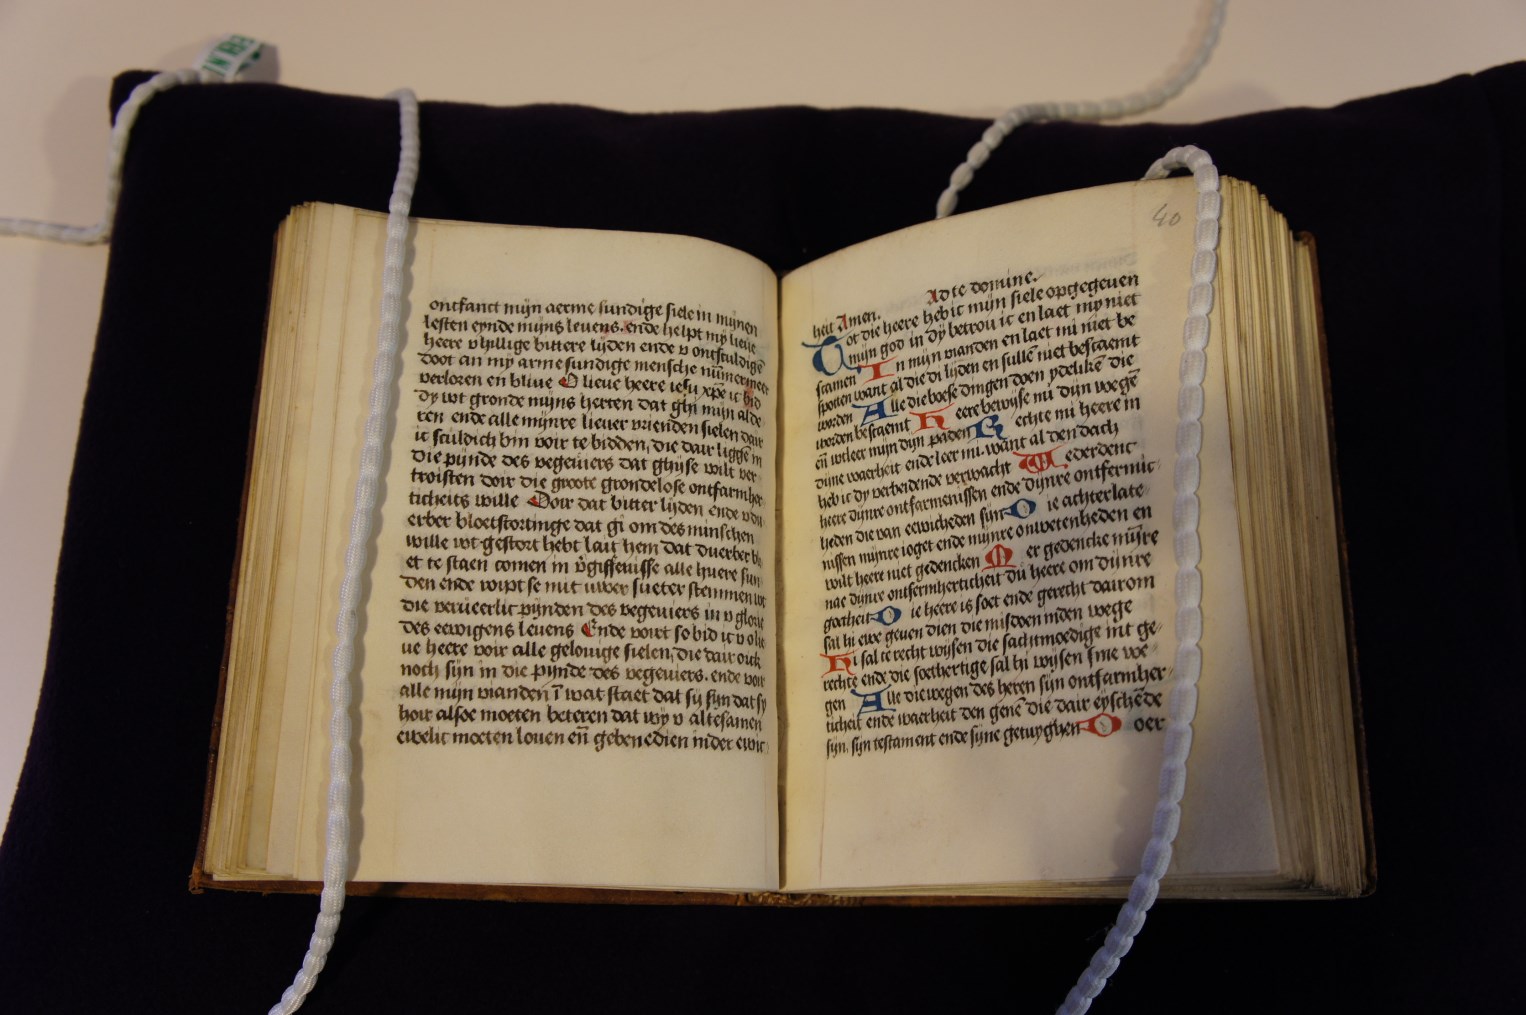 ontfanct mijn aerme sundige siele in mijnen
lesten eynde mijns leuens. ende helpt my lieue
heere v hyllige bittere lijden ende v ontsculdige
doot an my arme sundige mensche nūmermeer
verloren en bliue O lieue heere iesu xpē ic bid
dy wt gronde mijns herten dat ghi mijn alde
ren ende alle mijnre lieuer vrienden sielen dair
ic sculdich bin voir te bidden, die dair liggē in
die pijnde des vegeuiers dat ghijse wilt ver
troisten doir die groote grondelose ontfarmher
ticheits wille Doir dat bitter lijden ende v du
erber bloetstortinge dat gi om des minschen
wille wt gestort hebt lait hem dat duerber bl
et te staen comen in v̄giffenisse alle huere sun
den ende wipt se mit uwer sueter stemmen wt
die verueerlic pijnden des vegeuiers in v glorie
des eewigens leuens Ende voirt so bid ic v o lie
ue heere voir alle gelouige sielen, die dair ouck
noch sijn in die pijnde des vegeuiers. ende voir
alle mijn vianden ī wat staet dat sij sijn dat sy
hoir alsoe moeten beteren dat wy v altesamen
ewelic moeten louen eñ gebenedien inder ewic
40
Ad te domine.
heit Amen.
Tot die heere heb ic mijn siele opgegeuen
mijn god in dy betrou ic en laet my niet
scamen In mijn vianden en laet mi niet be
spotten want al die di lijden en sullē niet bescaemt
worden Alle die boese dingen doen ydelikē die
worden bescaemt Heere bewijse mi dijn wegē
eñ wtleer mijn dijn paden Rechte mi heere in
dijne waerheit ende leer mi. want al den dach
heb ic dy verbeidende verwacht Wederdenc
heere dijnre ontfarmenissen ende dijnre ontfermic
heden die van eewicheden sijn Die achterlate
nissen mijnre ioget ende mijnre onwetenheden en
wilt heere niet gedencken Mer gedencke mīire
nae dijnre ontfermherticheit du heere om dijnre
goetheit Die heere is soet ende gerecht dair om
sal hi ewe geuen dien die misdoen inden wege
Hi sal te recht wijsen die sachtmoedige int ge
rechte ende die soethertige sal hi wijsen sine we
gen Alle die wegen des heren sijn ontfarmher
ticheit ende waerheit den genē die dair eyschē de
sijn, sijn testament ende sijne getuyghen Doer